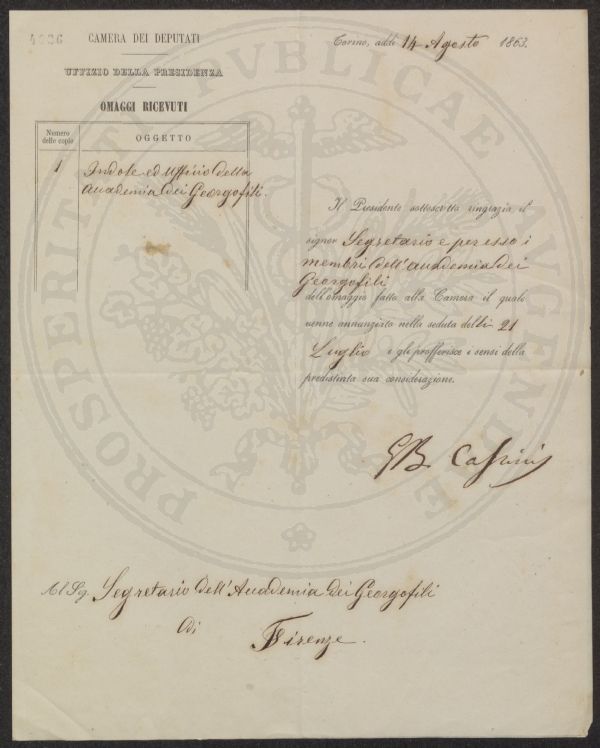 CAMERA DEI DEPUTATI
UFFIZIO DELLA PRESIDENZA
OMAGGI RICEVUTI
Numero delle copie
OGGETTO
1
Indole ed Ufficio della
Accademia dei Georgofili.
Torino, addì 14 Agosto 1863.
Il Presidente sottoscritto ringrazia il
signor Segretario e per esso i
membri dell'Accademia dei
Georgofili
dell'omaggio fatto alla Camera il quale
venne annunziato nella seduta delli 21
Luglio e gli profferisce i sensi della
predistinta sua considerazione.
GB Cassinis
Al Sig. Segretario dell'Accademia dei Georgofili
di
Firenze.
PROSPERITATI PVBLICAE AVGENDAE